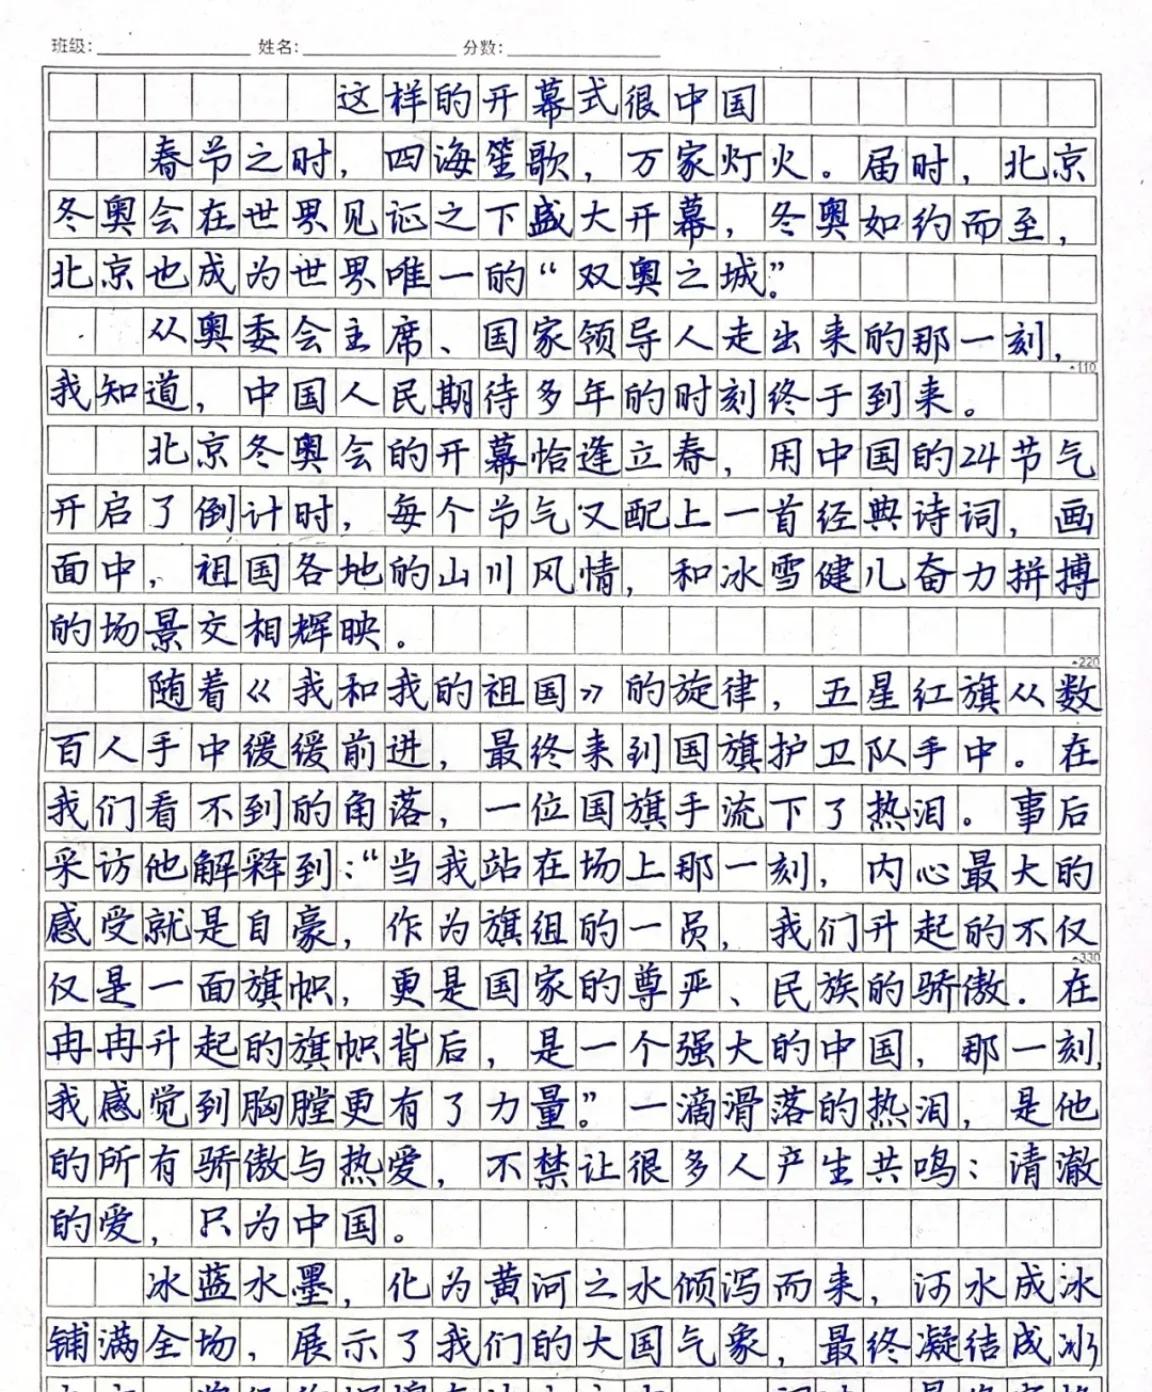 班级: 姓名: 分数:
这样的开幕式很中国
春节之时，四海笙歌，万家灯火。届时，北京
冬奥会在世界见证之下盛大开幕，冬奥如约而至，
北京也成为世界唯一的“双奥之城”。
从奥委会主席、国家领导人走出来的那一刻，
110
我知道，中国人民期待多年的时刻终于到来。
北京冬奥会的开幕恰逢立春，用中国的24节气
开启了倒计时，每个节气又配上一首经典诗词，画
面中，祖国各地的山川风情，和冰雪健儿奋力拼搏
的场景交相辉映。
220
随着《我和我的祖国》的旋律，五星红旗从数
百人手中缓缓前进，最终来到国旗护卫队手中。在
我们看不到的角落，一位国旗手流下了热泪。事后
采访他解释到：“当我站在场上那一刻，内心最大的
感受就是自豪，作为旗组的一员，我们升起的不仅
330
仅是一面旗帜，更是国家的尊严、民族的骄傲．在
冉冉升起的旗帜背后，是一个强大的中国，那一刻，
我感觉到胸膛更有了力量。”一滴滑落的热泪，是他
的所有骄傲与热爱，不禁让很多人产生共鸣：清澈
的爱，只为中国。
冰蓝水墨，化为黄河之水倾泻而来，河水成冰
铺满全场，展示了我们的大国气象，最终凝结成冰